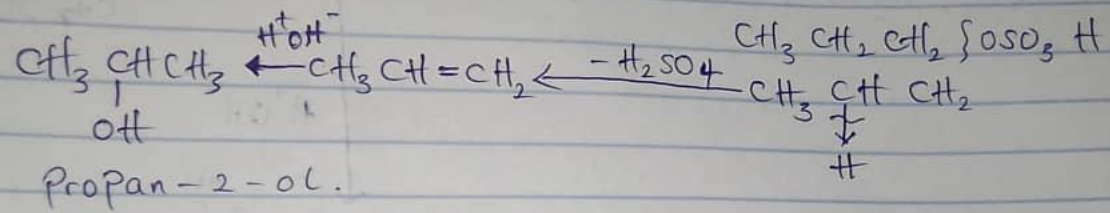 CH₃ CH₂ CH₂ { OSO₃ H
H⁺OH⁻
CH₃ CH CH₃ ← CH₃ CH = CH₂ ← - H₂SO4 CH₃ CH CH₂
OH H
Propan - 2 - ol.